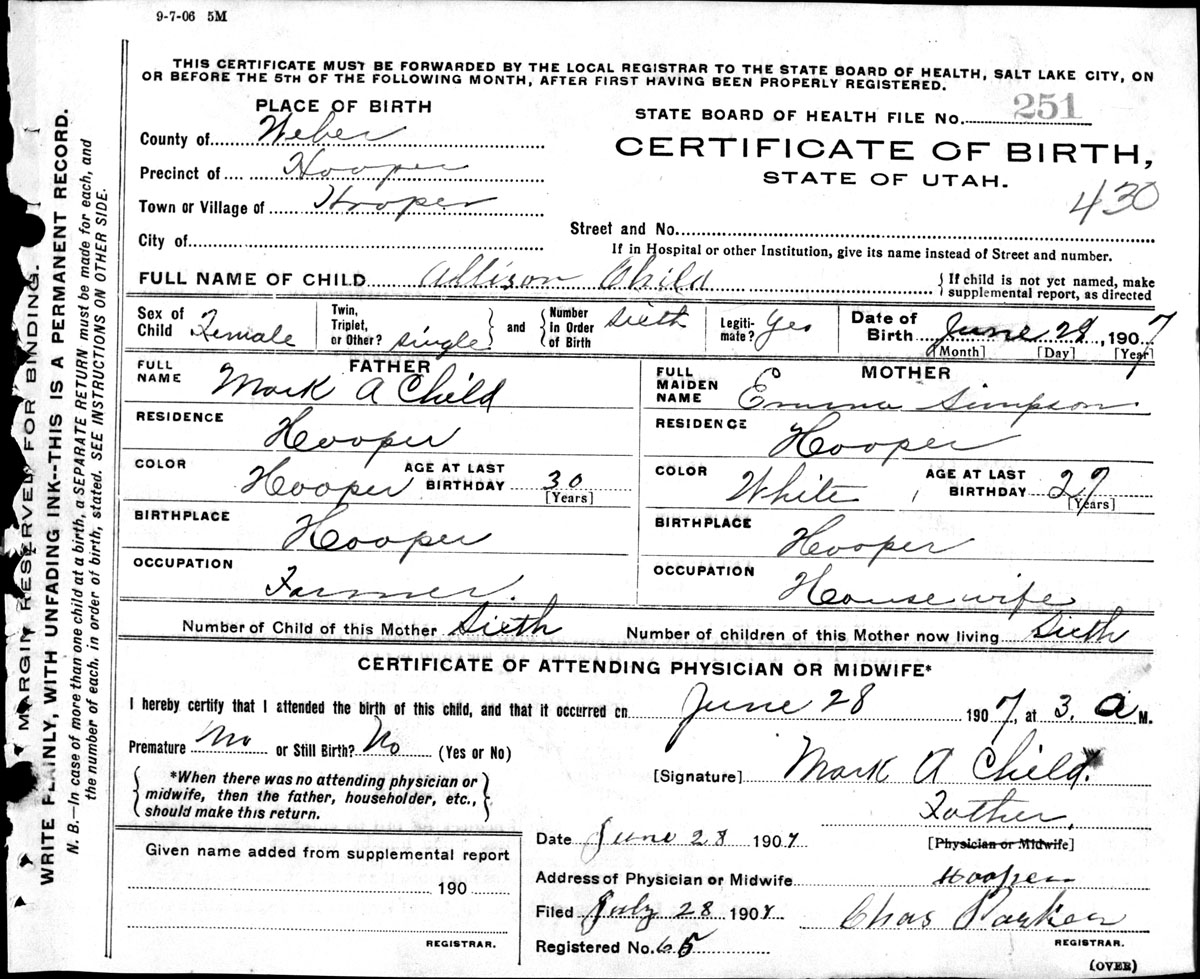 9-7-06 5M
THIS CERTIFICATE MUST BE FORWARDED BY THE LOCAL REGISTRAR TO THE STATE BOARD OF HEALTH, SALT LAKE CITY, ON
OR BEFORE THE 5TH OF THE FOLLOWING MONTH, AFTER FIRST HAVING BEEN PROPERLY REGISTERED.
PLACE OF BIRTH
County of Weber
Precinct of Hooper
Town or Village of Hooper
City of
STATE BOARD OF HEALTH FILE No. 251
CERTIFICATE OF BIRTH,
STATE OF UTAH.
430
Street and No.
If in Hospital or other Institution, give its name instead of Street and number.
FULL NAME OF CHILD Allison Child
{ If child is not yet named, make
supplemental report, as directed
Sex of Child Female
Twin, Triplet, or Other? single } and { Number In Order of Birth sixth
Legiti-mate? Yes
Date of Birth June 28, 1907
[Month] [Day] [Year]
FATHER
FULL NAME Mark A Child
RESIDENCE Hooper
COLOR Hooper AGE AT LAST BIRTHDAY 30
[Years]
BIRTHPLACE Hooper
OCCUPATION Farmer.
MOTHER
FULL MAIDEN NAME Emma Simpson
RESIDENCE Hooper
COLOR White AGE AT LAST BIRTHDAY 27
[Years]
BIRTHPLACE Hooper
OCCUPATION House wife
Number of Child of this Mother Sixth Number of children of this Mother now living Sixth
CERTIFICATE OF ATTENDING PHYSICIAN OR MIDWIFE*
I hereby certify that I attended the birth of this child, and that it occurred on June 28 1907, at 3. A M.
Premature No or Still Birth? No (Yes or No)
{ *When there was no attending physician or
midwife, then the father, householder, etc.,
should make this return. }
[Signature] Mark A Child.
Father.
[Physician or Midwife]
Date June 28 1907
Address of Physician or Midwife Hooper
Filed July 28 1907 Chas Parker
Registered No. 65 REGISTRAR.
Given name added from supplemental report
190
REGISTRAR.
(OVER)
MARGIN RESERVED FOR BINDING.
WRITE PLAINLY, WITH UNFADING INK--THIS IS A PERMANENT RECORD.
N. B.—In case of more than one child at a birth, a SEPARATE RETURN must be made for each, and
the number of each, in order of birth, stated. SEE INSTRUCTIONS ON OTHER SIDE.